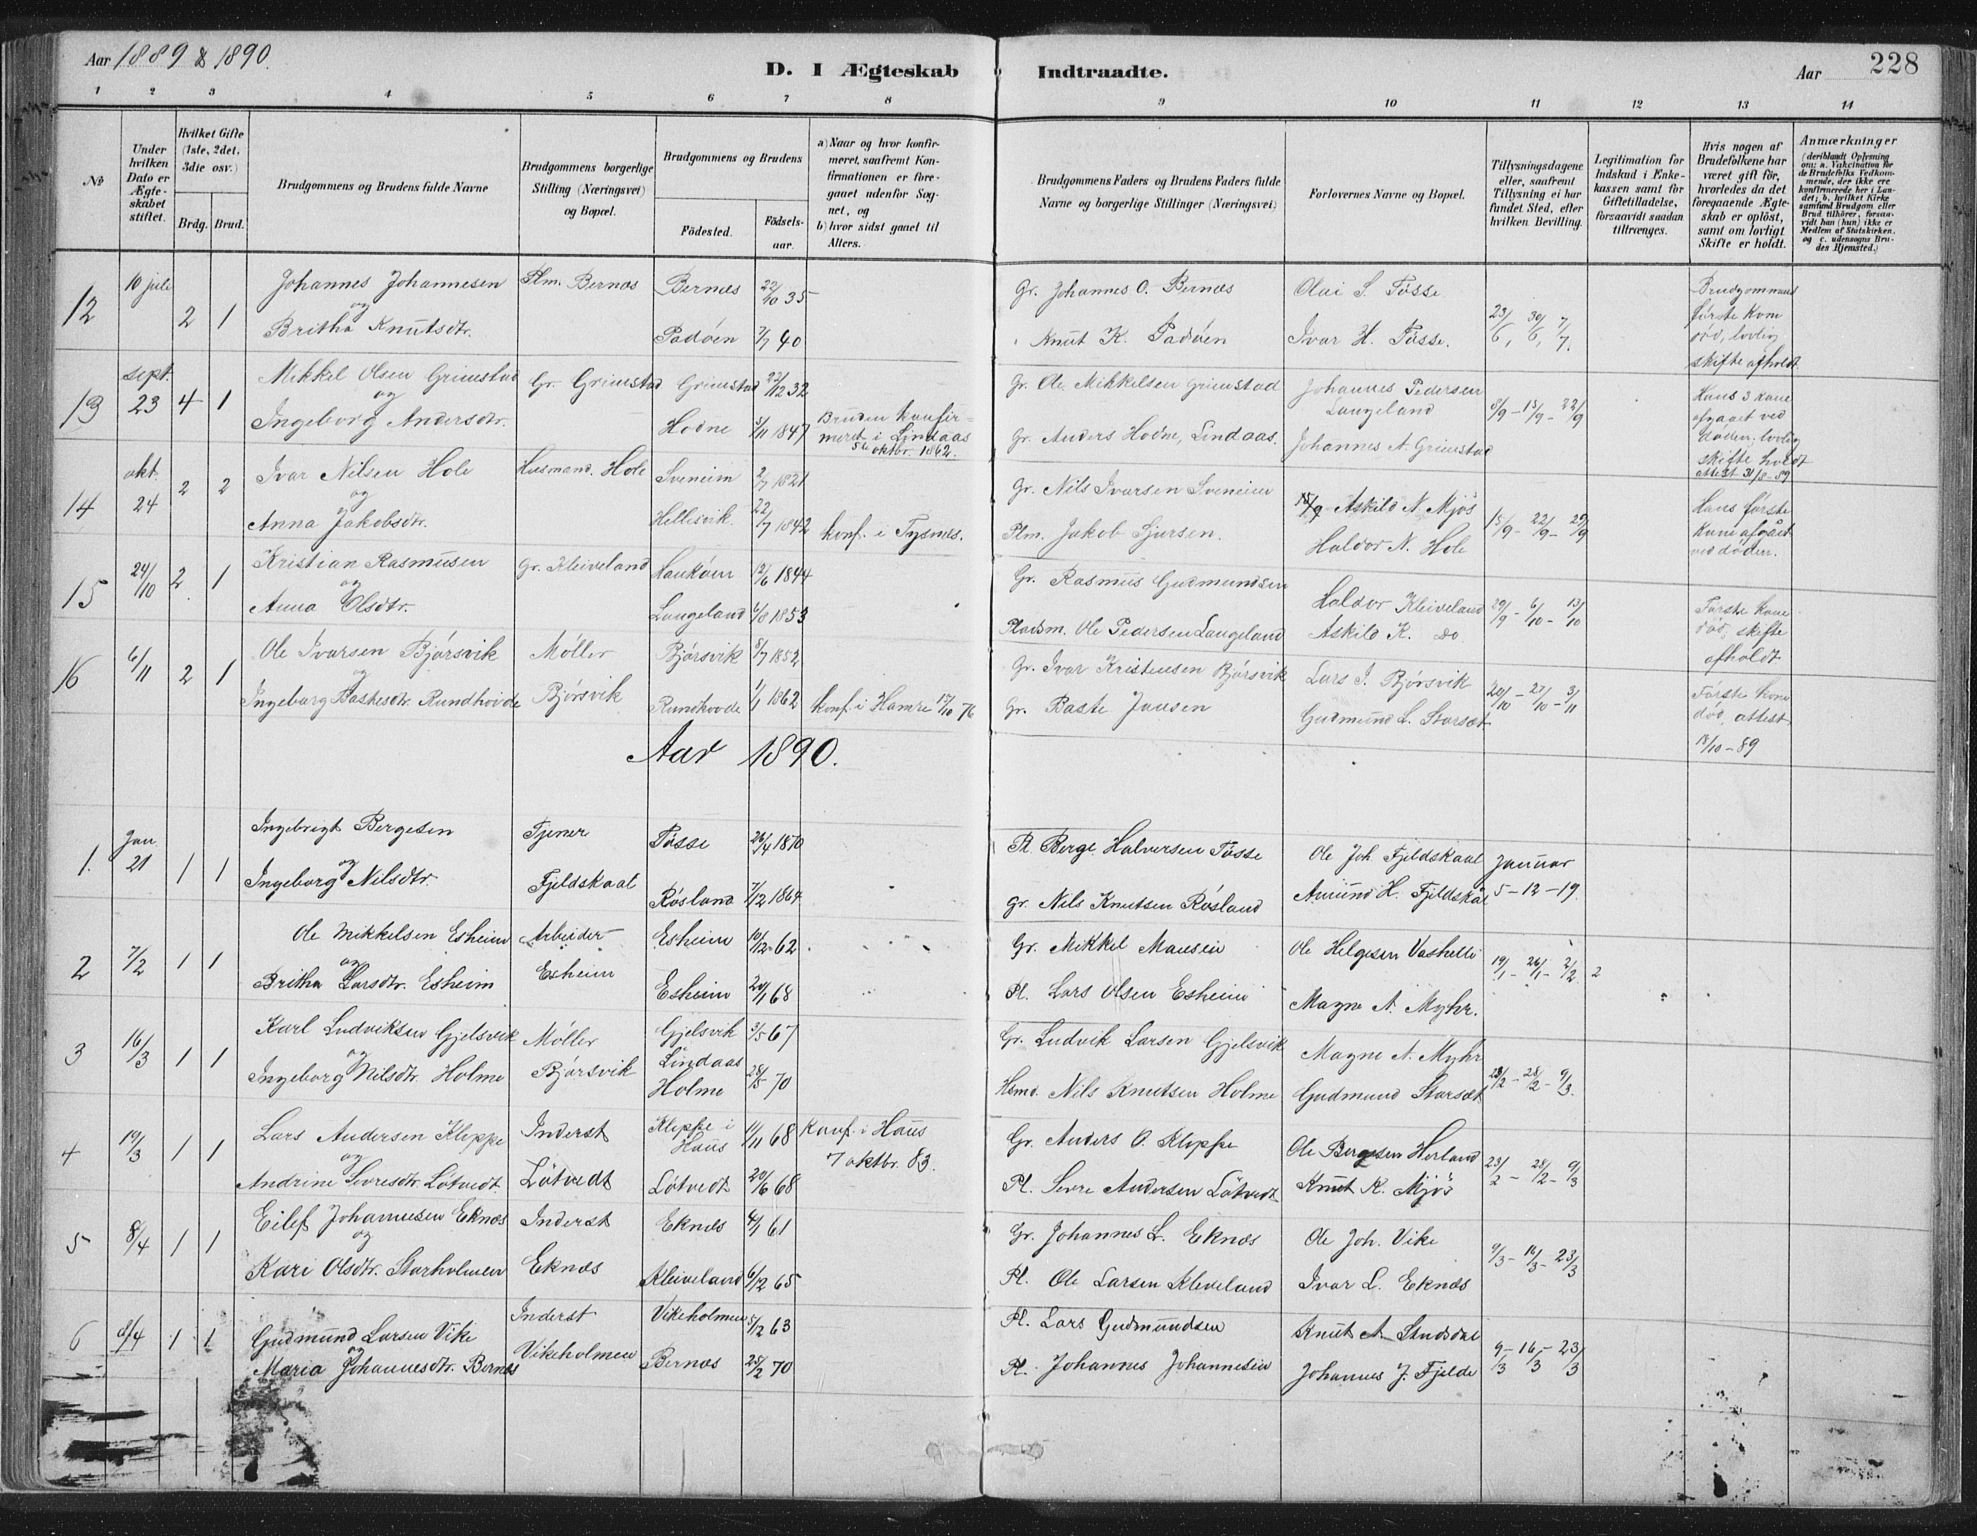 Aar 1889 & 1890.
D. I Ægteskab Indtraadte.
Aar 228
1 2 3 4 5 6 7 8 9 10 11 12 13 14
No
Under hvilken Dato er Ægteskabet stiftet.
Hvilket Gifte (1ste, 2det, 3die osv.)
Brdg. Brud.
Brudgommens og Brudens fulde Navne
Brudgommens borgerlige Stilling (Næringsvei) og Bopæl.
Brudgommens og Brudens
Fødested.
Fødselsaar.
a) Naar og hvor konfirmeret, saafremt Konfirmationen er foregaaet udenfor Sognet, og
b) hvor sidst gaaet til Alters.
Brudgommens Faders og Brudens Faders fulde Navne og borgerlige Stillinger (Næringsvei)
Forlovernes Navne og Bopæl.
Tillysningsdagene eller, saafremt Tillysning ei har fundet Sted, efter hvilken Bevilling.
Legitimation for Indskud i Enkekassen samt for Giftetilladelse, forsaavidt saadan tiltrænges.
Hvis nogen af Brudefolkene har været gift før, hvorledes da det foregaaende Ægteskab er opløst, samt om lovligt Skifte er holdt.
Anmærkninger
(deriblandt Oplysning om: a. Vakcination for de Brudefolks Vedkommende, der ikke ere konfirmerede her i Landet; b. hvilket Kirkesamfund Brudgom eller Brud tilhører, forsaavidt han (hun) ikke er Medlem af Statskirken, og c. udensogns Brudes Hjemsted.)
12 10 juli 2 1 Johannes Johannesen Plm. Bernæs Bernæs 22/10 35 Gr. Johannes O. Bernæs Olai S. Tösse 23/6, 30/6, 7/7. Brudgommens første kone död, lovlig skifte afholdt
og
Britha Knutsdtr. Padöen 7/7 40 Knut K. Padöen Ivar H. Tösse.
13 sept. 23 4 1 Mikkel Olsen Grimstad Gr. Grimstad Grimstad 22/12 32 Gr. Ole Mikkelsen Grimstad Johannes Pedersen Langeland 8/9 - 15/9 - 22/9 Hans 3 kone afgaaet ved döden, lovlig skifte holdt attest 31/8-89
og
Ingeborg Andersdtr. Hodne 5/11 1847 Bruden konfirmeret i Lindaas 5te oktbr. 1862. Gr. Anders Hodne, Lindaas. Johannes A. Grimstad
14 okt. 24 2 2 Ivar Nilsen Hole Husmand. Hole Sveneim 2/7 1821 Gr. Nils Ivarsen Sveneim Askild N. Mjös 15/9 - 22/9 - 29/9 Hans første kone afgået ved døden.
og
Anna Jakobsdtr. Hellisvik. 22/7 1842 konf. i Tysnes. Plm. Jakob Sjursen. Haldor N. Hole
15 24/10 2 1 Kristian Rasmusen Gr. Kleiveland Hauköen 12/6 1844 Gr. Rasmus Gudmundsen Haldor Kleiveland 29/9 - 6/10 - 13/10 Første kone död, skifte afholdt
og
Anna Olsdtr. Langeland 6/8 1853 Pladsm. Ole Pedersen Langeland Askild K. do
16 6/11 2 1 Ole Ivarsen Bjørsvik Møller Bjørsvik 8/7 1852 Gr. Ivar Kristensen Bjørsvik Lars I. Bjørsvik 20/10 - 27/10 - 3/11 Første kone død, attest 18/10-89
og
Ingeborg Bastesdtr. Rundhovde Bjørsvik Rundhovde 1/1 1862 konf. i Hamre 15/10 76 Gr. Baste Jansen Gudmund L. Storsæt
Aar 1890.
1. Jan 21 1 1 Ingebrigt Bergesen Tjener Tösse 26/4 1870 Pl. Berge Halversen Tösse Ole Joh. Fjeldskaal Januar
og
Ingeborg Nilsdtr. Fjeldskaal Rösland 7/12 1864 Gr. Nils Knutsen Rösland Amund H. Fjeldskål 5-12-19.
2 7/2 1 1 Ole Mikkelsen Esheim Arbeider Esheim 10/12 62 Gr. Mikkel Monsen Ole Helgesen Vashelli 19/1 - 26/1 - 2/2 2
og
Britha Larsdtr. Esheim Esheim Esheim 20/1 68 Pl. Lars Olsen Esheim Magne A. Myhr.
3 16/3 1 1 Karl Ludviksen Gjelsvik Møller Gjelsvik Lindaas 3/5 67 Gr. Ludvik Larsen Gjelsvik Magne A. Myhr 23/2 - 28/2 - 9/3.
og
Ingeborg Nilsdtr. Holme Bjørsvik Holme 28/5 70 Hsmd. Nils Knutsen Holme Gudmund Storsæt
4 19/3 1 1 Lars Andersen Kleppe Inderst Kleppe i Haus 11/11 68 konf. i Haus 7 oktbr. 83. Gr. Anders O. Kleppe Ole Bergesen Herland 23/2 - 28/2 - 9/3
og
Andrine Sevresdtr. Lötvedt Lötvedt Lötvedt 20/6 68 Pl. Sevre Andersen Lötvedt Knut K. Mjös
5 8/4 1 1 Eilef Johannesen Eknæs Inderst Eknæs 4/1 61 Gr. Johannes L. Eknæs Ole Joh. Vike 9/3 - 16/3 - 23/3
og
Kari Olsdtr. Storholmen Eknæs Kleiveland 6/12 65 Pl. Ole Larsen Kleveland Ivar L. Eknæs
6 8/4 1 1 Gudmund Larsen Vike Inderst Vikeholmen 5/2 63 Pl. Lars Gudmundsen Knut A. 9/3 - 16/3 - 23/3
og
Maria Johannesdtr. Bernæs Vikeholmen Bernæs 25/2 70 Pl. Johannes Johannesen Johannes J. Fjelde